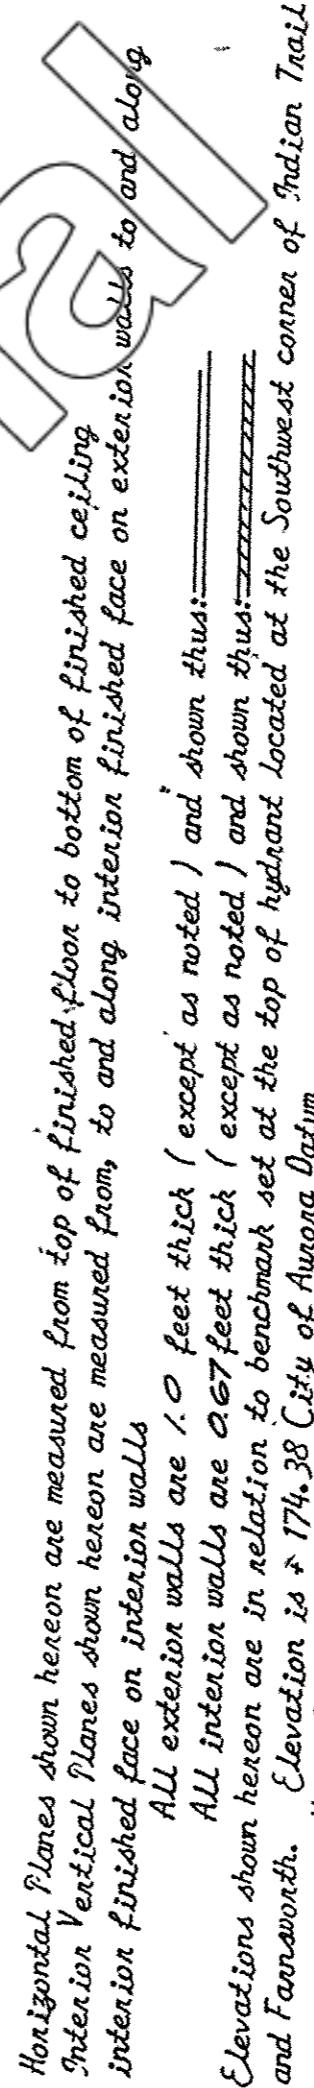 Horizontal Planes shown hereon are measured from top of finished floor to bottom of finished ceiling
Interior Vertical Planes shown hereon are measured from, to and along interior finished face on exterior walls to and along
interior finished face on interior walls
All exterior walls are 1.0 feet thick ( except as noted ) and shown thus:
All interior walls are 0.67 feet thick ( except as noted ) and shown thus:
Elevations shown hereon are in relation to benchmark set at the top of hydrant located at the Southwest corner of Indian Trail
and Farnsworth. Elevation is + 174.38 City of Aurora Datum
al